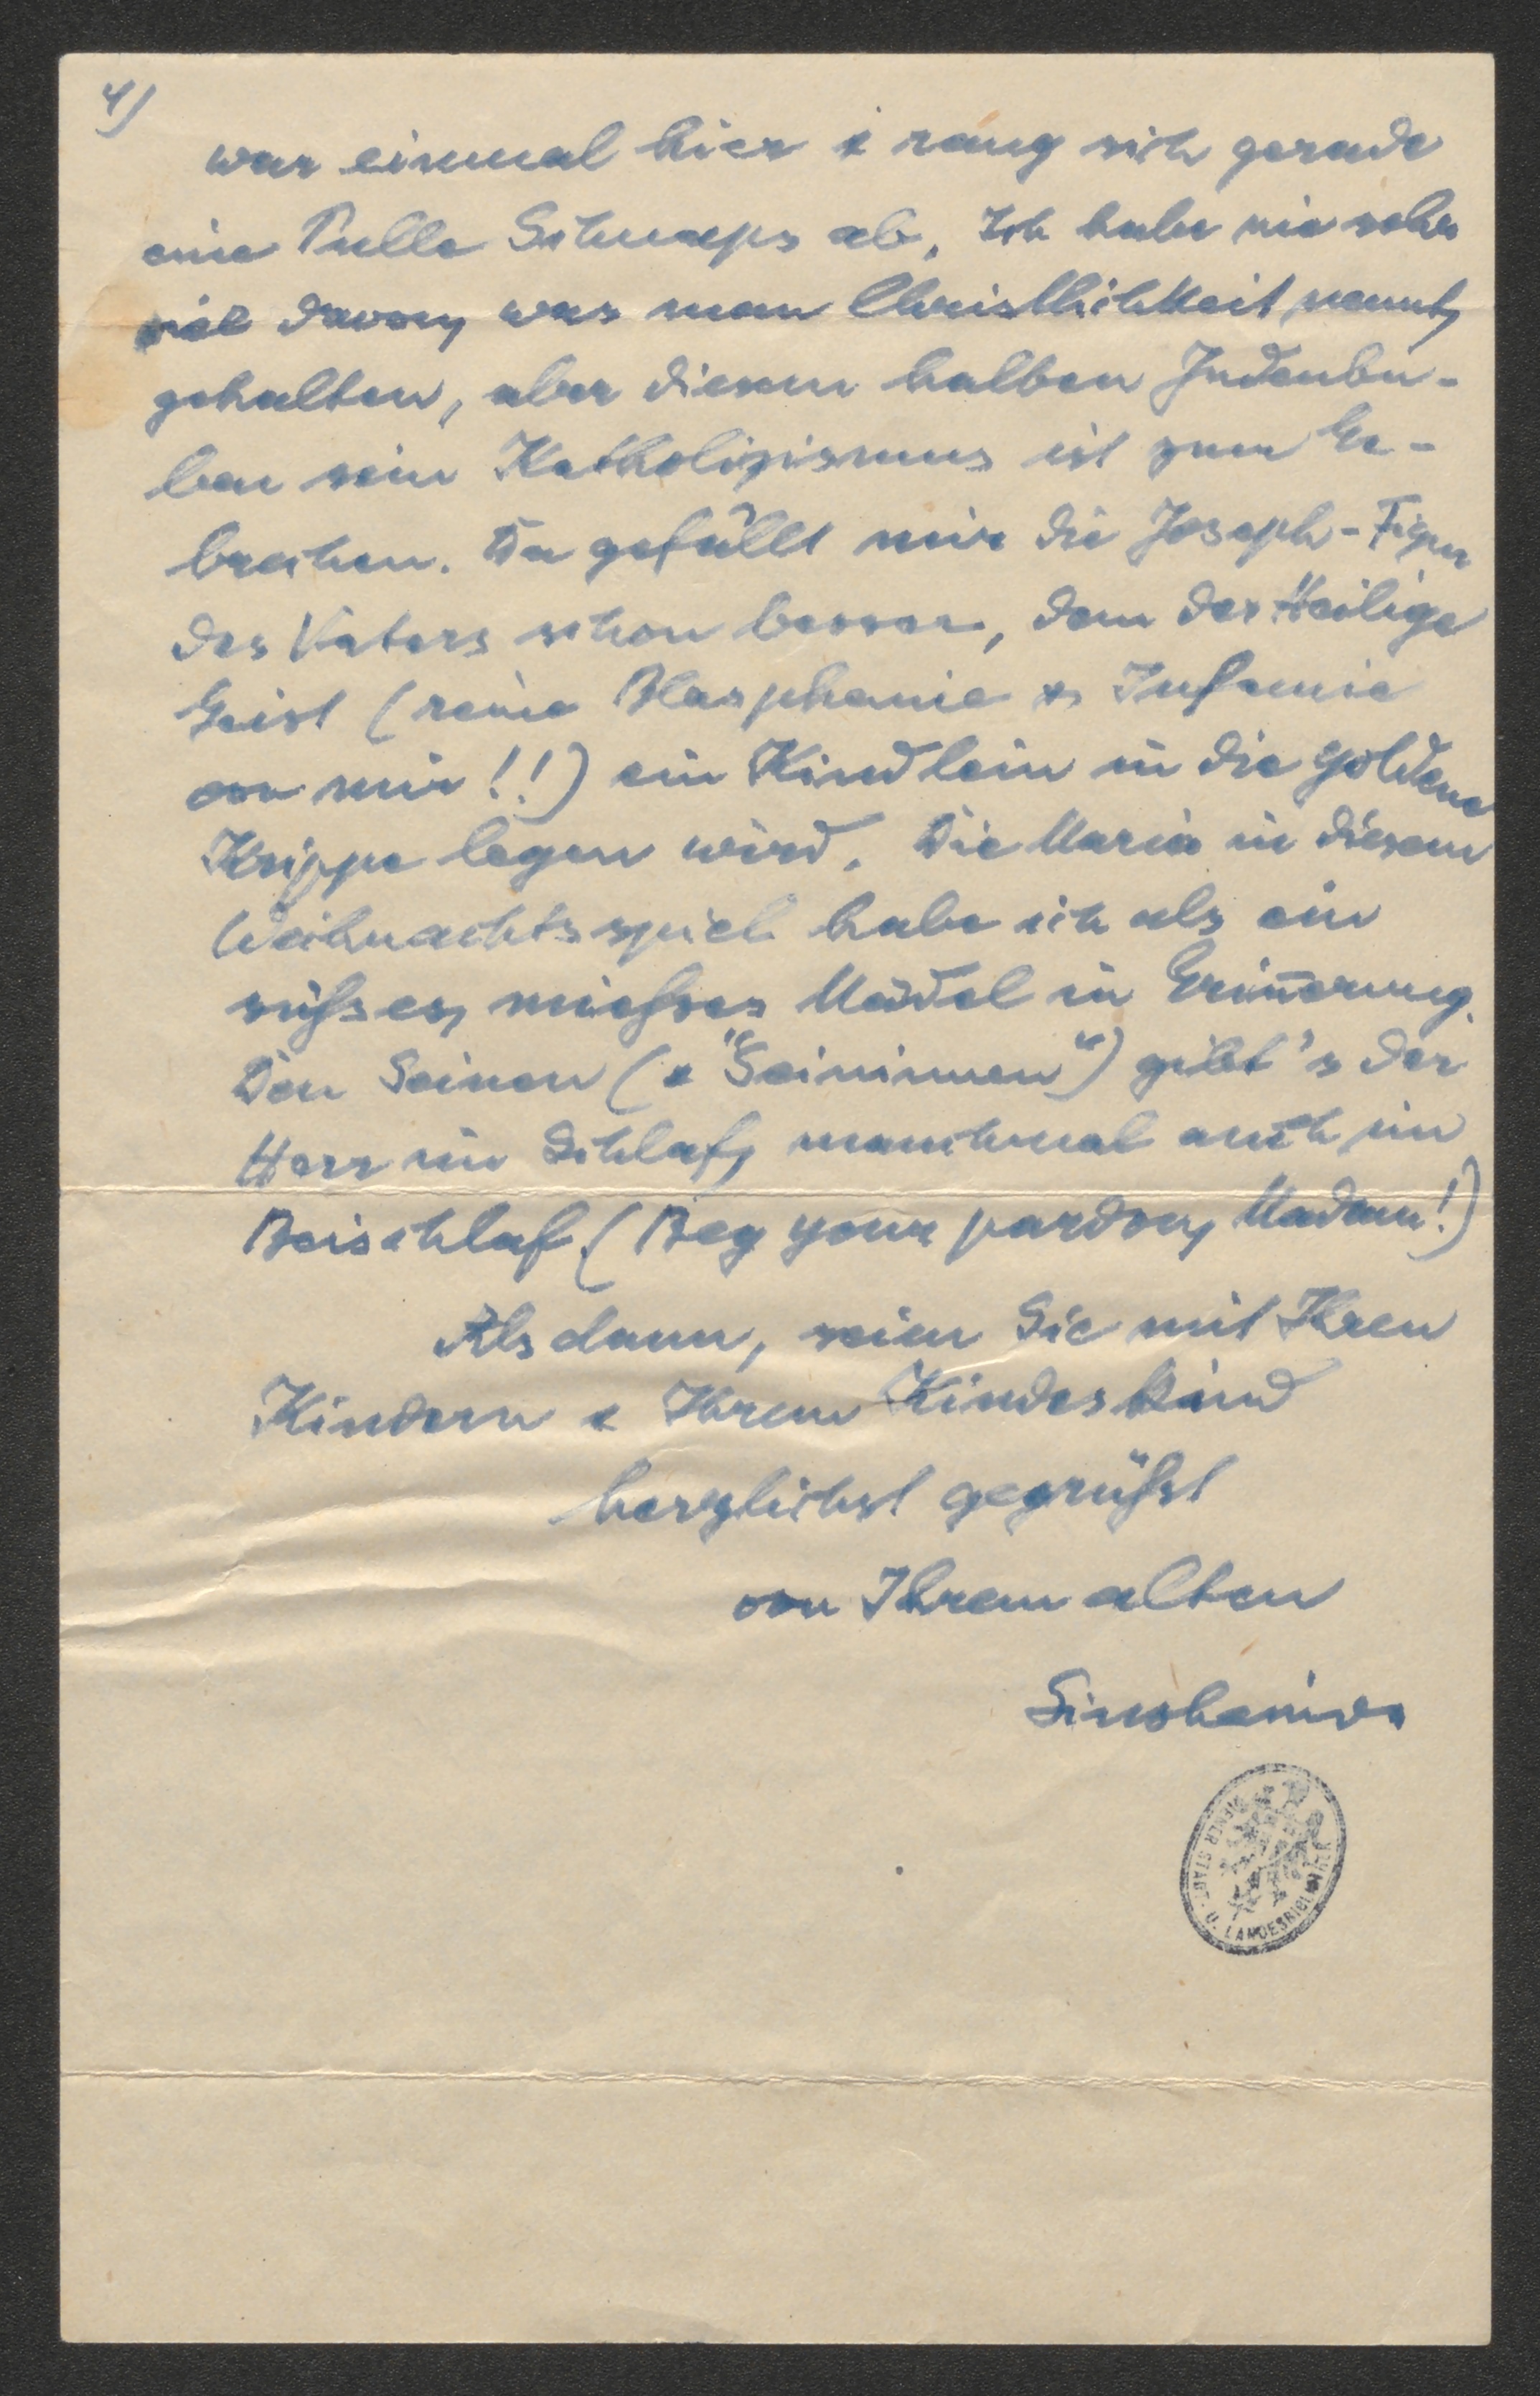 4)
war einmal hier & rang sich gerade
eine Pulle Schnaps ab. Ich habe nie sehr
viel davon, was man Christlichkeit nennt,
gehalten, aber diesem halben Judenbu-
ben sein Katholizismus ist zum Er-
brechen. Da gefällt mir die Joseph-Figur
des Vaters schon besser, dem der Heilige
Geist (reine Blasphemie & Infamie
von mir!!) ein Kindlein in die goldene
Krippe legen wird. Die Maria in diesem
Weihnachtsspiel habe ich als ein
süßses, mießses Mädel in Erinnerung.
Den Seinen (& "Seininnen") gibt's der
Herr im Schlaf, manchmal auch im
Beischlaf (Beg your pardon, Madam!)
Alsdann, seien Sie mit Ihren
Kindern & Ihrem Kindeskind
herzlichst gegrüßst
von Ihrem alten
Sinsheimer
WIENER STADT- U. LANDESBIBLIOTHEK